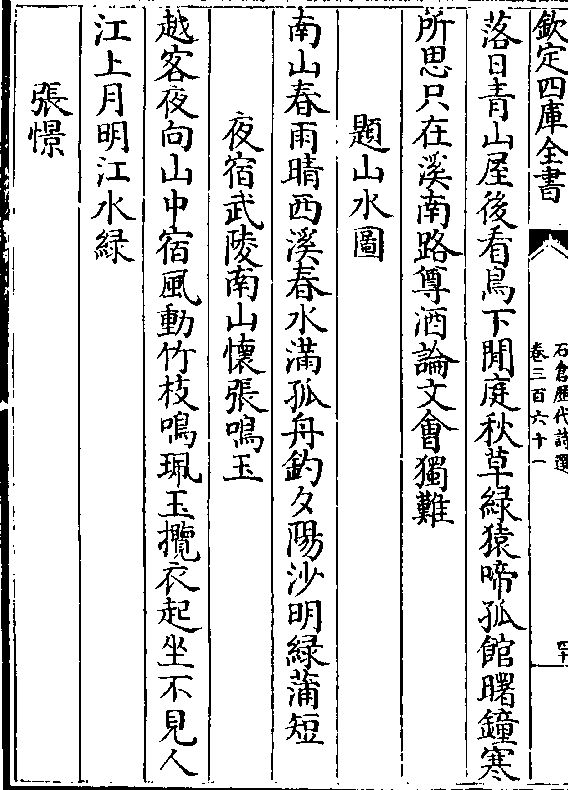 欽定四庫全書
石倉歷代詩選
卷三百六十一
四十
落日青山屋後看鳥下閒庭秋草綠猿啼孤館曙鐘寒
所思只在溪南路尊酒論文會獨難
題山水圖
南山春雨晴西溪春水滿孤舟釣夕陽沙明綠蒲短
夜宿武陵南山懷張鳴玉
越客夜向山中宿風動竹枝鳴珮玉攬衣起坐不見人
江上月明江水綠
張憬